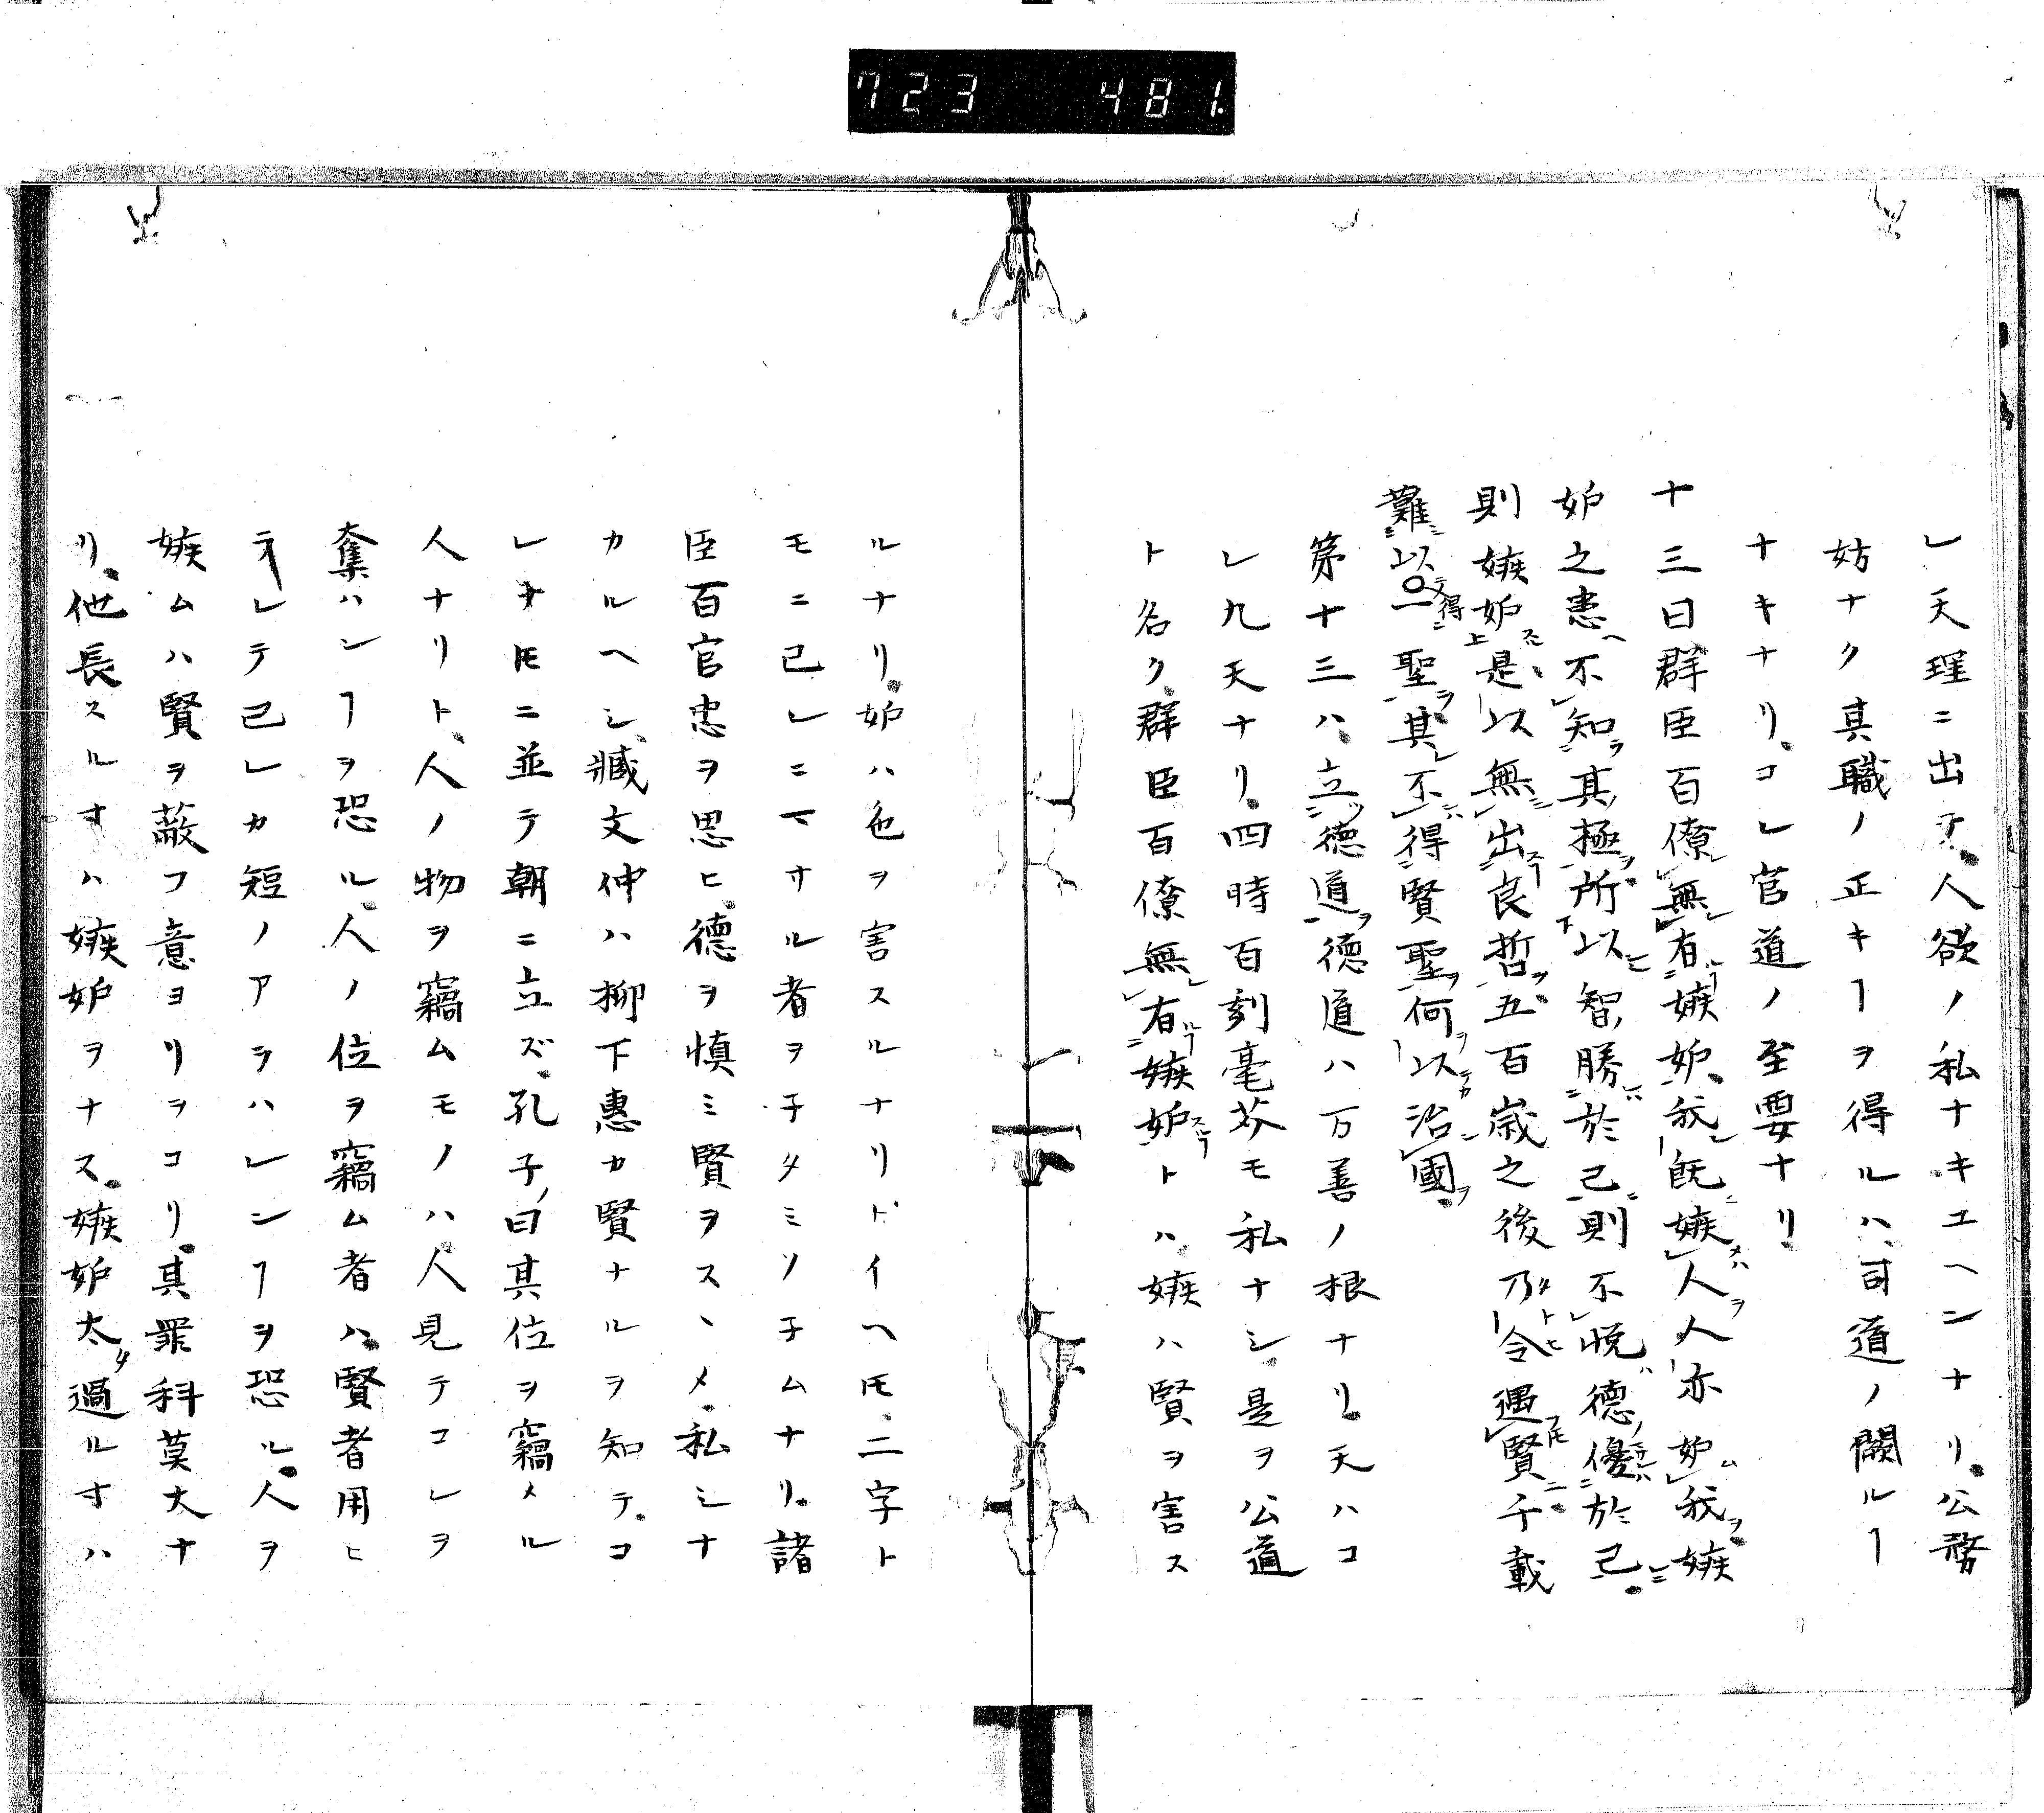 723 481.
レ天理ニ出テ、人欲ノ私ナキユヘンナリ。公務
妨ナク其職ノ正キヿヲ得ルハ、司道ノ闕ルヿ
ナキナリ。コレ官道ノ至要ナリ
十三曰群臣百僚無有嫉妬、我既嫉人人亦妬我嫉
妬之患不知其極所以智勝於己則不悦徳優於己
則嫉妬是以無出良哲五百歳之後乃令遇賢千載
難以得一聖其不得賢聖何以治國
第十三ハ、立徳道徳道ハ万善ノ根ナリ。天ハコ
レ九天ナリ。四時百刻毫芥モ私ナシ、是ヲ公道
ト名ク、群臣百僚無有嫉妬トハ、嫉ハ賢ヲ害ス
ルナリ。妬ハ色ヲ害スルナリトイヘ𪜈、二字ト
モニ己レニマサル者ヲ子タミソ子ムナリ。諸
臣百官忠ヲ思ヒ、德ヲ慎ミ賢ヲスヽメ、私シナ
カルヘシ、臧文仲ハ柳下惠カ賢ナルヲ知テ、コ
レナ𪜈ニ並テ朝ニ立ズ、孔子曰其位ヲ竊メル
人ナリト、人ノ物ヲ竊ムモノハ、人見テコレヲ
奪ハンヿヲ恐ル、人ノ位ヲ竊ム者ハ、賢者用ヒ
ラレテ己レカ短ノアラハレンヿヲ恐ル、人ヲ
嫉ムハ賢ヲ蔽フ意ヨリヲコリ、其罪科莫大ナ
リ、他長スルナハ嫉妬ヲナス。嫉妬太タ過ルナハ